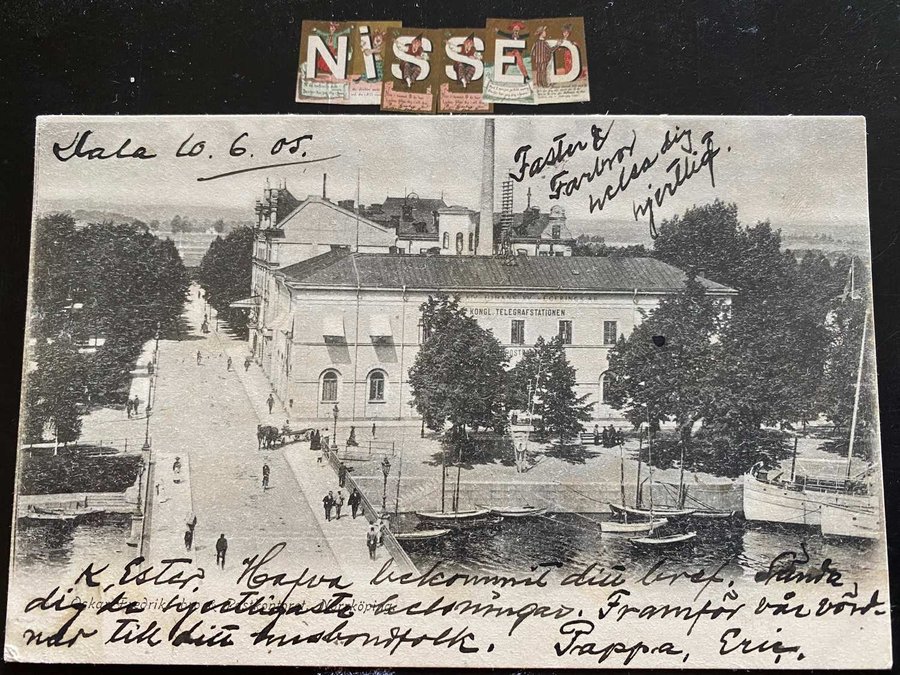 NiSSED
Dala 10.6.05.
Faster &
Farbror
helsa dig
hjertligt.
KONGL. TELEGRAFSTATIONEN
K. Ester Hafva bekommit ditt bref. Sända
dig de hjertligaste helsningar. Framför vår vörd-
nar till ditt husbondfolk. Pappa, Eric,